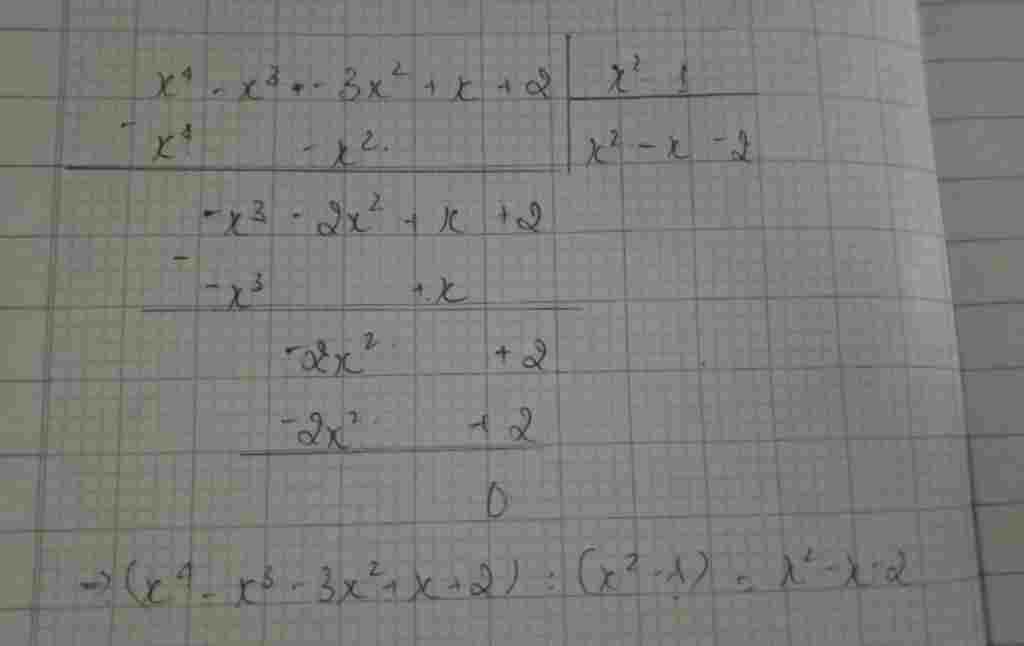 x⁴ - x³ - 3x² + x + 2 | x² - 1
- x⁴ - x² | x² - x - 2
-x³ - 2x² + x + 2
-
-x³ + x
-2x² + 2
-2x² + 2
0
=> (x⁴ - x³ - 3x² + x + 2) : (x² - 1) = x² - x - 2